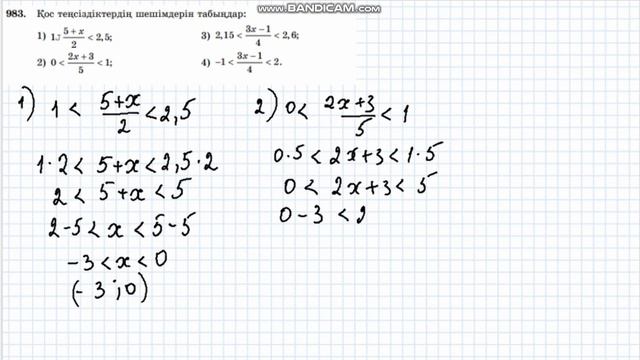 WWW.BANDICAM.COM
983. Қос теңсіздіктердің шешімдерін табыңдар:
1) 1 < (5+x)/2 < 2,5; 3) 2,15 < (3x−1)/4 < 2,6;
2) 0 < (2x+3)/5 < 1; 4) −1 < (3x−1)/4 < 2.
1) 1 < (5+x)/2 < 2,5
1·2 < 5+x < 2,5·2
2 < 5+x < 5
2-5 < x < 5-5
-3 < x < 0
(-3;0)
2) 0 < (2x+3)/5 < 1
0·5 < 2x+3 < 1·5
0 < 2x+3 < 5
0-3 < 2